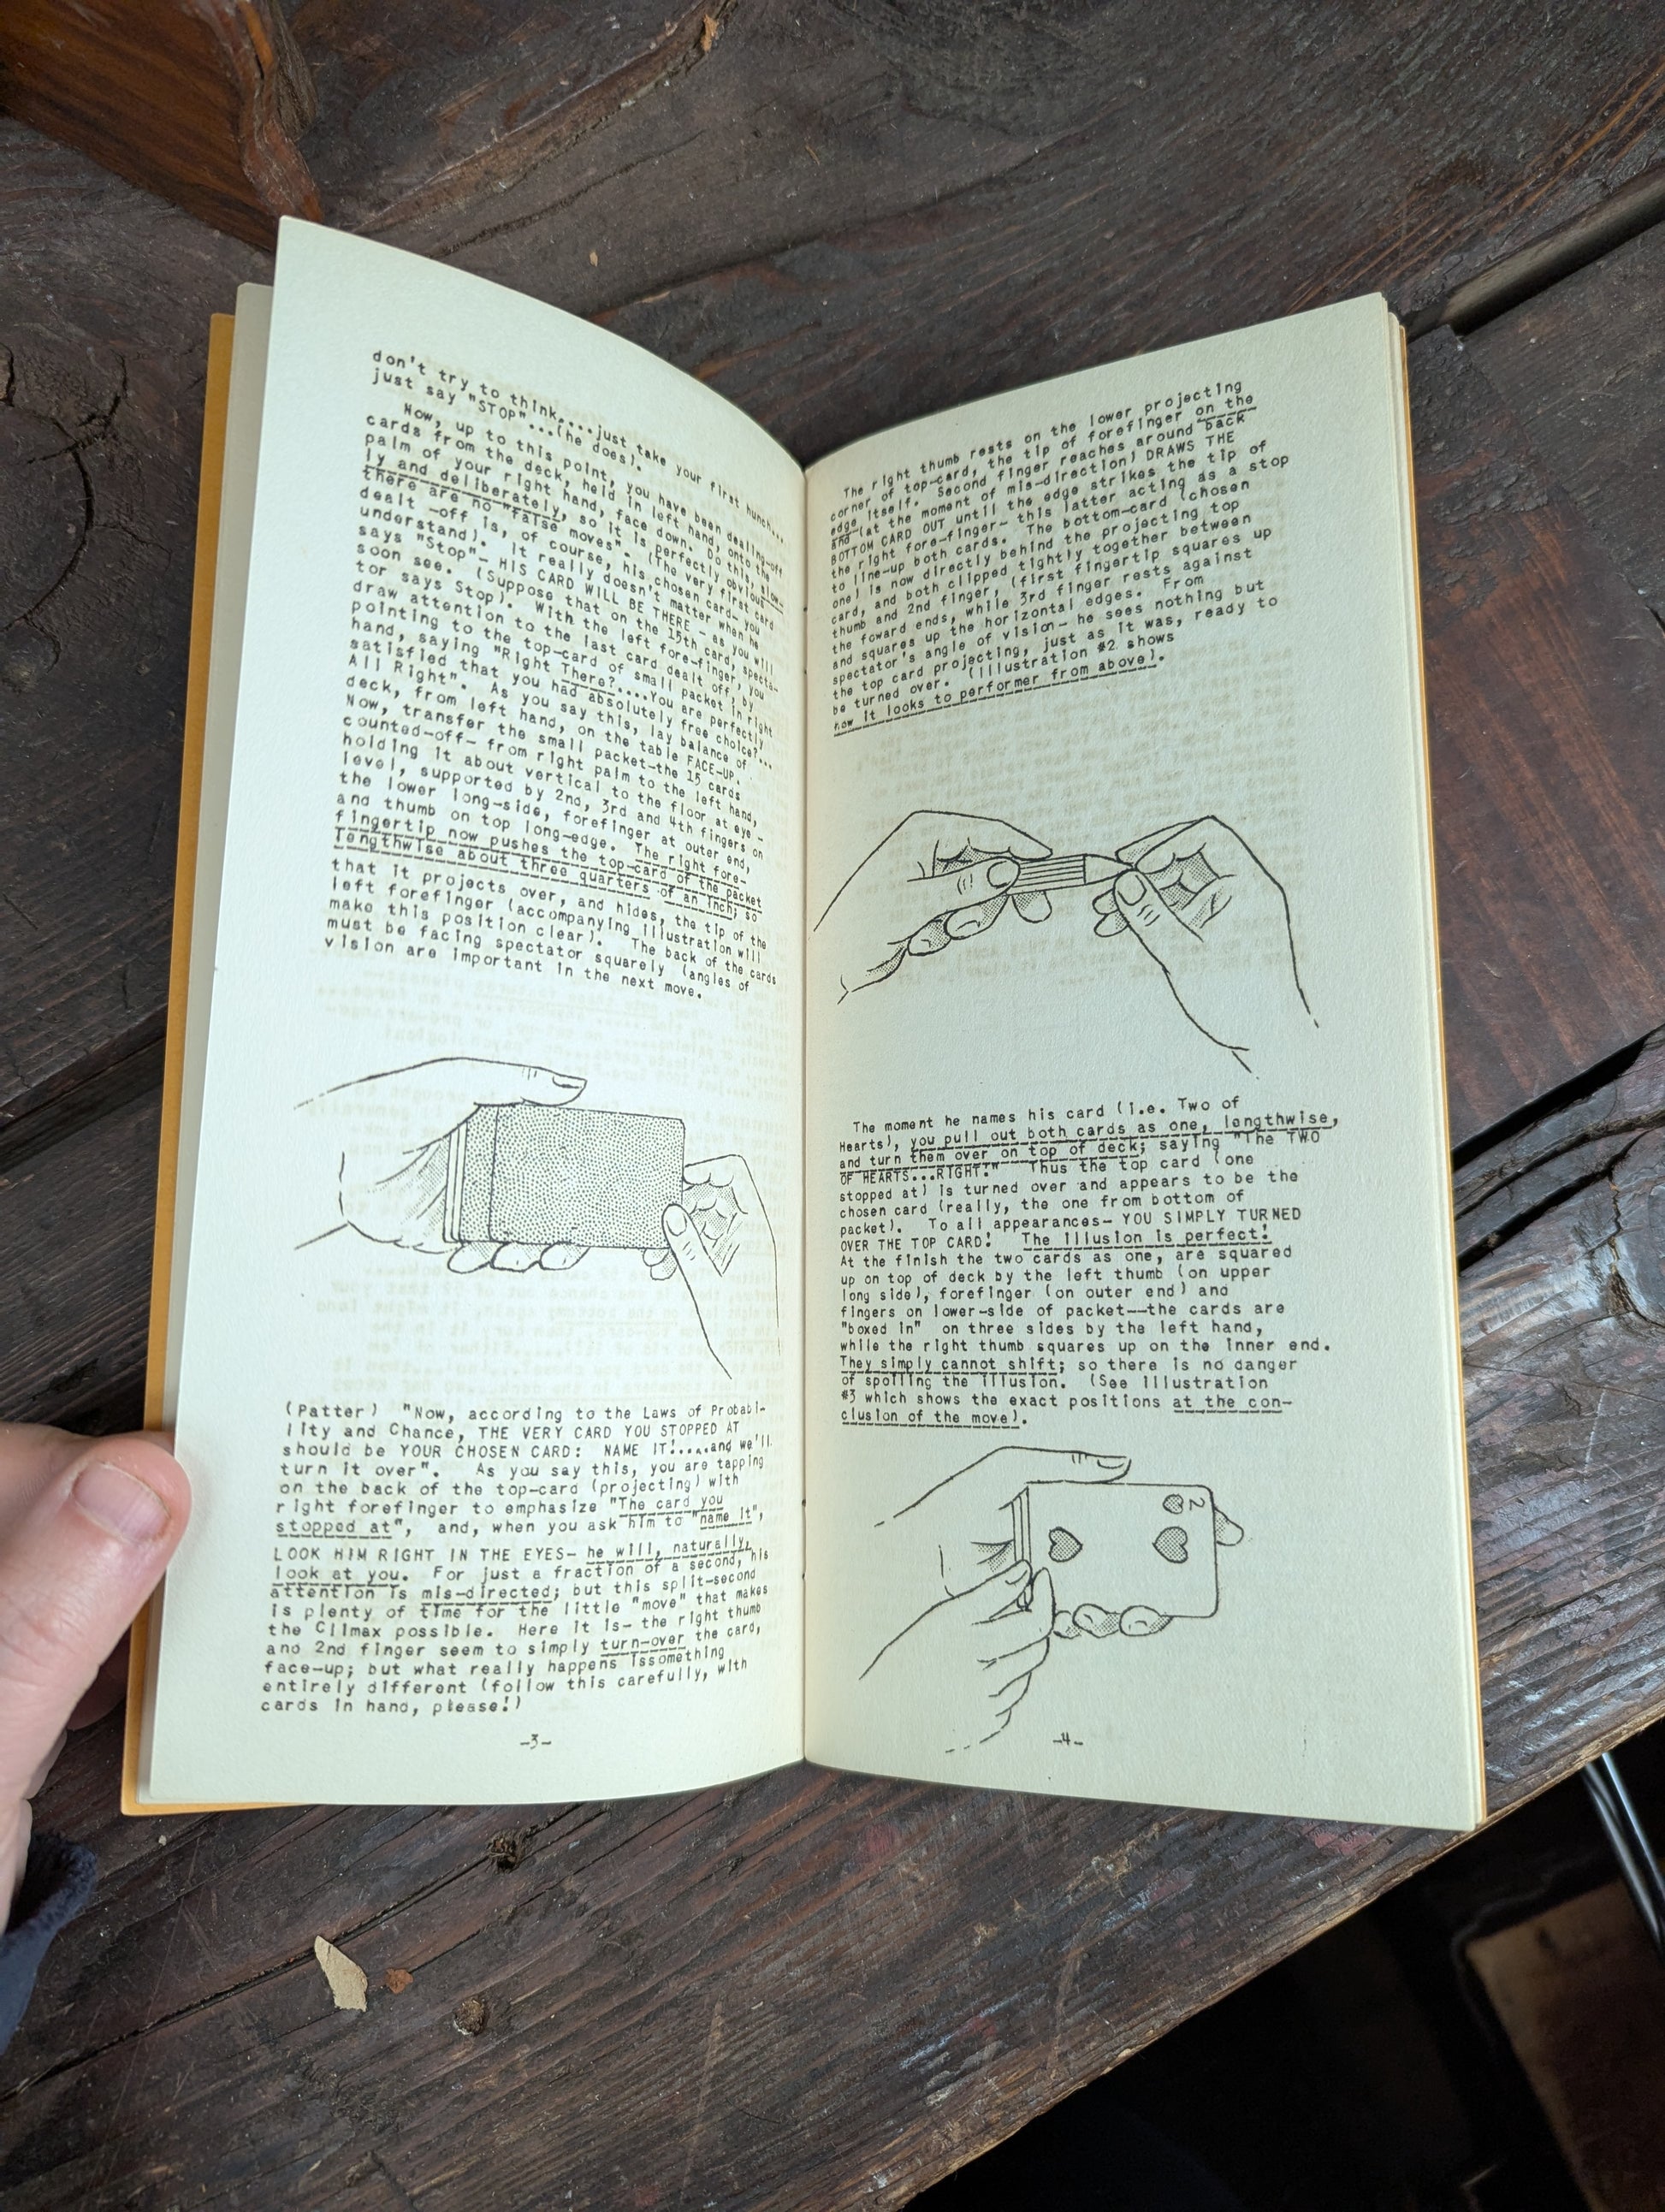 don't try to think....just take your first hunch...
just say "STOP"...(he does).
Now, up to this point, you have been dealing-off
cards from the deck, held in left hand, onto the
palm of your right hand, face down. Do this, slow-
ly and deliberately, so it is perfectly obvious
there are no "false moves". (The very first card
dealt -off is, of course, his chosen card- you
understand). It really doesn't matter when he
says "Stop"- HIS CARD WILL BE THERE - as you will
soon see. (Suppose that on the 15th card, specta-
tor says Stop). With the left fore-finger, you
draw attention to the last card dealt off, by
pointing to the top-card of small packet in right
hand, saying "Right There?....You are perfectly
satisfied that you had absolutely free choice?...
All Right". As you say this, lay balance of
deck, from left hand, on the table FACE-UP.
Now, transfer the small packet-the 15 cards
counted-off- from right palm to the left hand,
holding it about vertical to the floor at eye-
level, supported by 2nd, 3rd and 4th fingers on
the lower long-side, forefinger at outer end,
and thumb on top long-edge. The right fore-
fingertip now pushes the top-card of the packet
lengthwise about three quarters of an inch; so
that it projects over, and hides, the tip of the
left forefinger (accompanying illustration will
make this position clear). The back of the cards
must be facing spectator squarely (angles of
vision are important in the next move.
(Patter) "Now, according to the Laws of Probabi-
lity and Chance, THE VERY CARD YOU STOPPED AT
should be YOUR CHOSEN CARD: NAME IT!....and we'll
turn it over". As you say this, you are tapping
on the back of the top-card (projecting) with
right forefinger to emphasize "The card you
stopped at", and, when you ask him to "name it",
LOOK HIM RIGHT IN THE EYES- he will, naturally,
look at you. For just a fraction of a second, his
attention is mis-directed; but this split-second
is plenty of time for the little "move" that makes
the Climax possible. Here it is- the right thumb
and 2nd finger seem to simply turn-over the card,
face-up; but what really happens issomething
entirely different (follow this carefully, with
cards in hand, please!)
-3-
The right thumb rests on the lower projecting
corner of top-card, the tip of forefinger on the
edge itself. Second finger reaches around back
and (at the moment of mis-direction) DRAWS THE
BOTTOM CARD OUT until the edge strikes the tip of
the right fore-finger- this latter acting as a stop
to line-up both cards. The bottom-card (chosen
one) is now directly behind the projecting top
card, and both clipped tightly together between
thumb and 2nd finger, (first fingertip squares up
the foward ends, while 3rd finger rests against
and squares up the horizontal edges. From
spectator's angle of vision- he sees nothing but
the top card projecting, just as it was, ready to
be turned over. (Illustration #2 shows
how it looks to performer from above).
The moment he names his card (i.e. Two of
Hearts), you pull out both cards as one, lengthwise,
and turn them over on top of deck; saying "The TWO
OF HEARTS...RIGHT!" Thus the top card (one
stopped at) is turned over and appears to be the
chosen card (really, the one from bottom of
packet). To all appearances- YOU SIMPLY TURNED
OVER THE TOP CARD! The illusion is perfect!
At the finish the two cards as one, are squared
up on top of deck by the left thumb (on upper
long side), forefinger (on outer end) and
fingers on lower-side of packet--the cards are
"boxed in" on three sides by the left hand,
while the right thumb squares up on the inner end.
They simply cannot shift; so there is no danger
of spoiling the illusion. (See illustration
#3 which shows the exact positions at the con-
clusion of the move).
2
-4-